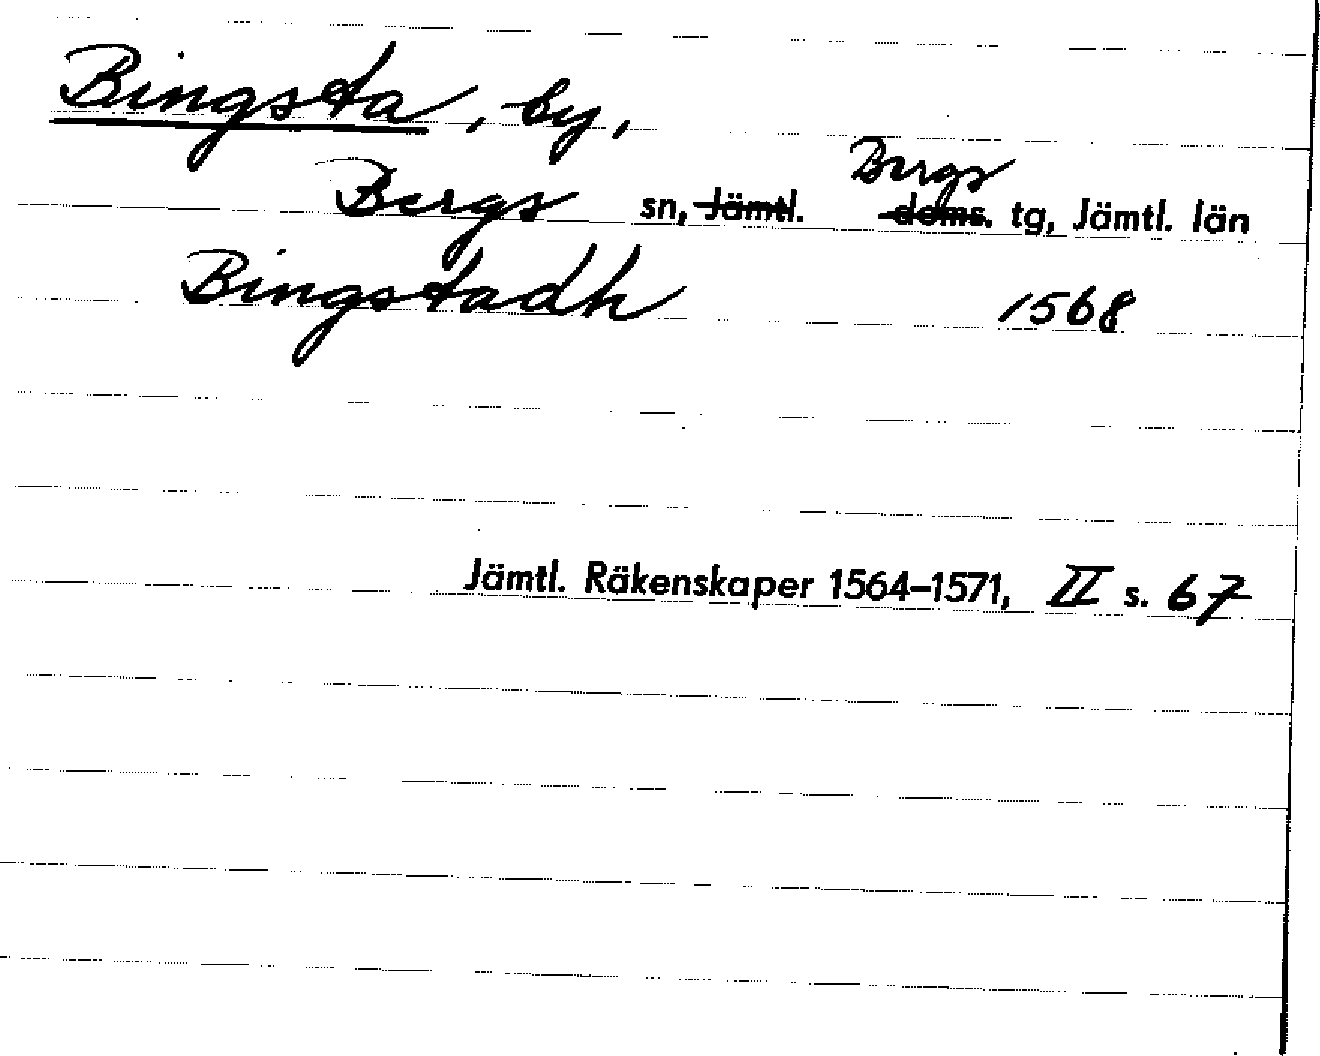 Bingsta, by,
Bergs sn, Jämtl. Bergs doms. tg, Jämtl. län
Bingstadh 1568
Jämtl. Räkenskaper 1564–1571, II s. 67